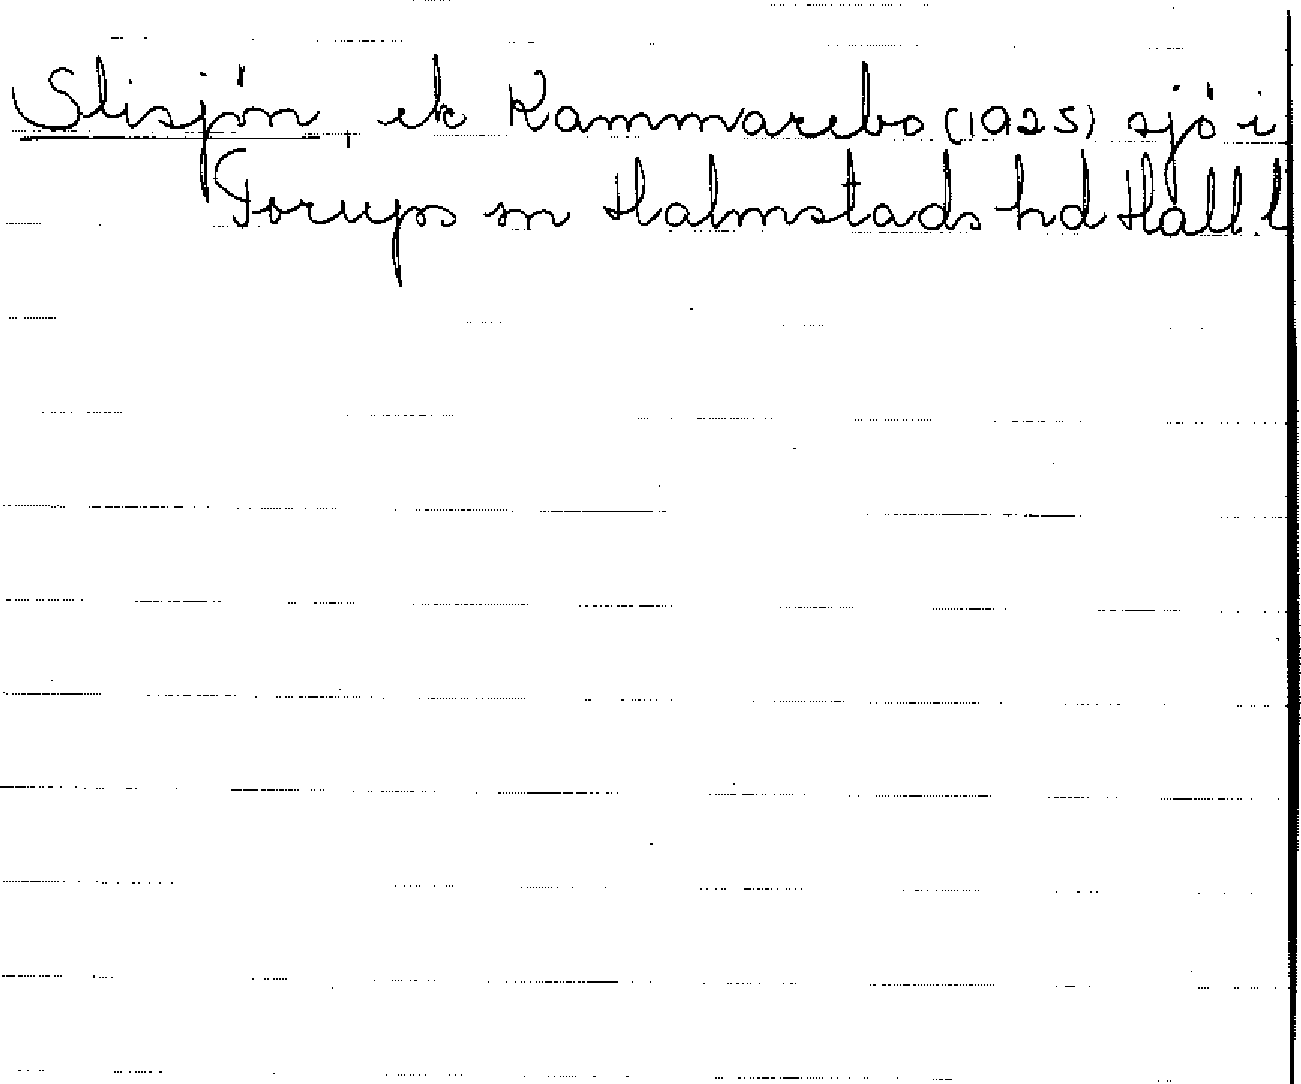 Slisjön, ek Kammarebo (1925) sjö i
Torups sn Halmstads hd Hall l